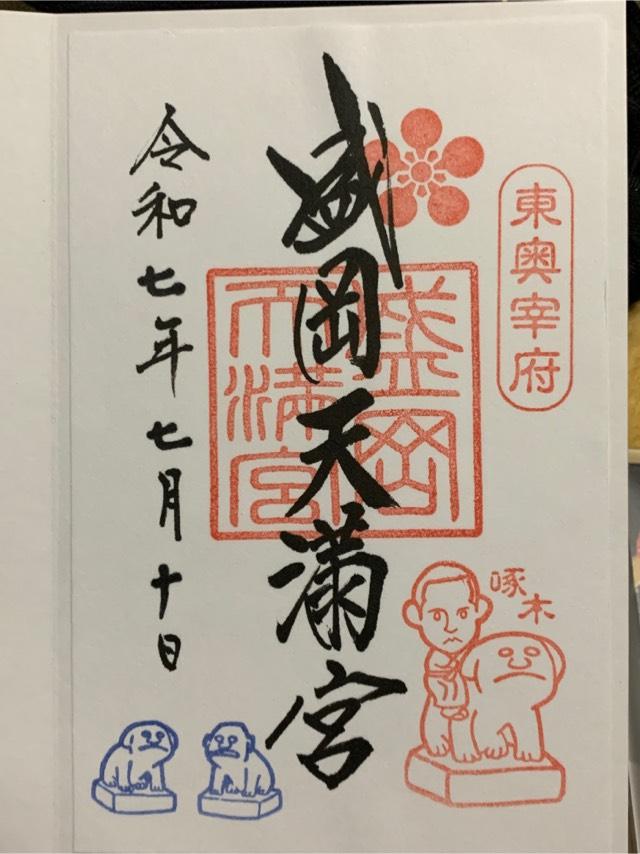 東奥宰府
盛岡天満宮
盛岡
天満宮
啄木
令和七年七月十日